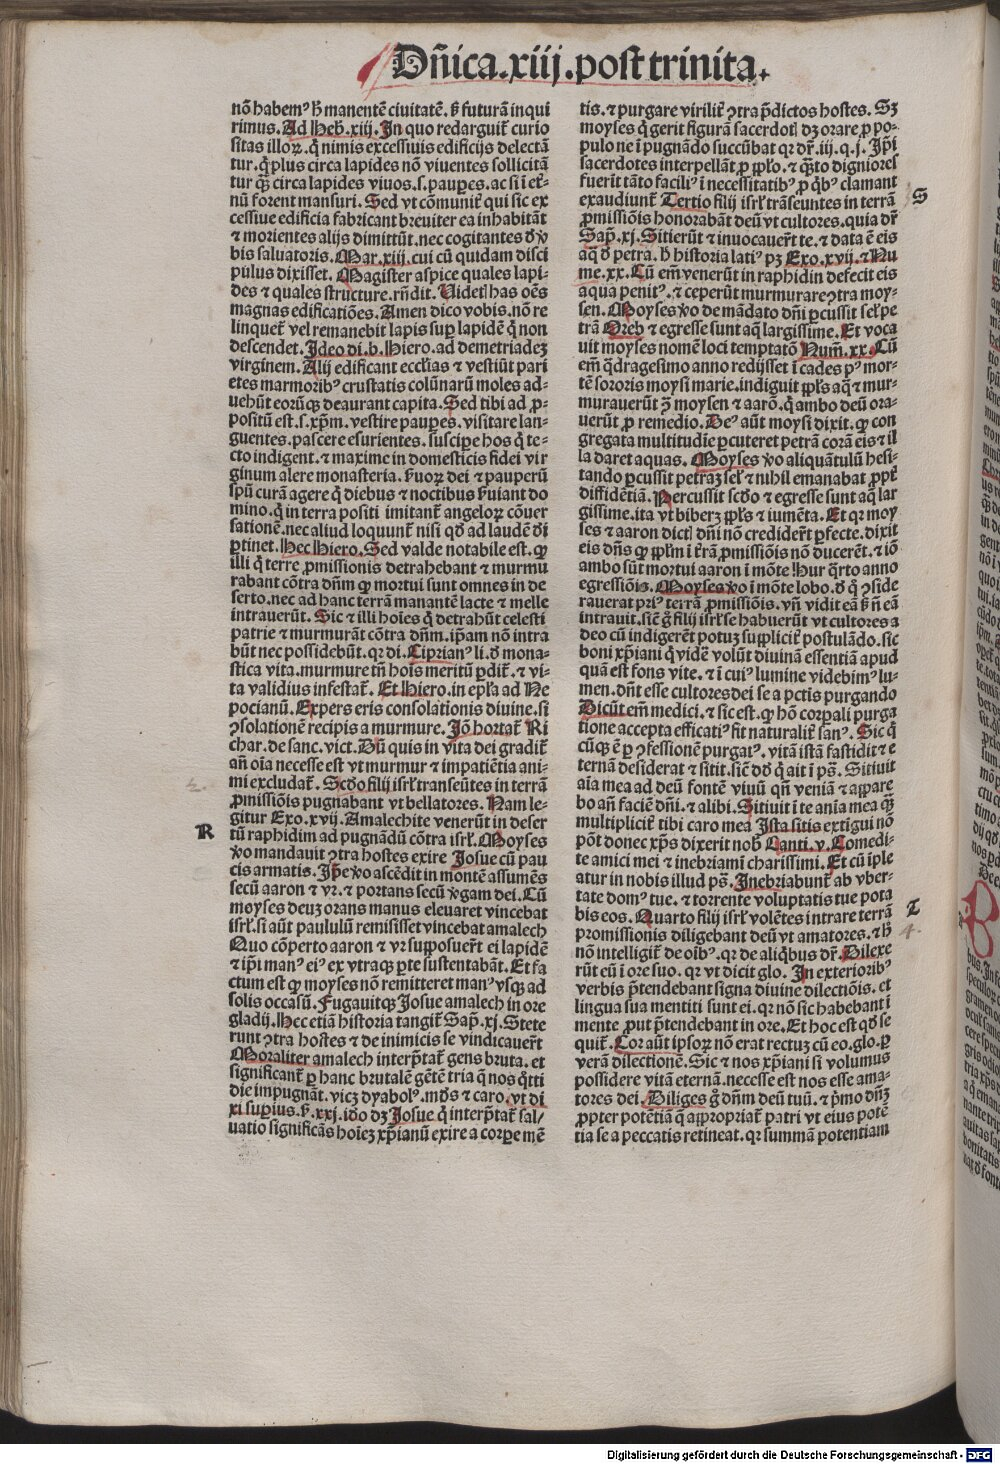 Dn̄ica.xiij.post trinita.
nō habemꝰ h̄ manentē ciuitatē. s̄ futurā inqui
rimus. Ad Heb̄. xiij. In quo redarguit̄ curio
sitas illoꝝ. q̄ nimis excessiuis edificijs delectā
tur. q̄ plus circa lapides nō viuentes sollicitā
tur qꝫ circa lapides viuos. s. pauꝑes. ac si ī et̄-
nū forent mansuri. Sed vt cōmunit̄ qui sic ex
cessiue edificia fabricant breuiter ea inhabitāt
⁊ morientes alijs dimittūt. nec cogitantes ꝺ̄ vō
bis saluatoris. Mar. xiij. cui cū quidam disci
pulus dixisset. Magister aspice quales lapi-
des ⁊ quales structure. rn̄dit. Videtꝭ has oēs
magnas edificatiōes. Amen dico vobis. nō re
linquet̄ vel remanebit lapis suꝑ lapidē q̄ non
descendet. Ideo di. b. Hiero. ad demetriadeꝫ
virginem. Alij edificant ecclīas ⁊ vestiūt pari
etes marmoribꝰ crustatis colūnarū moles ad-
uehūt eorūqꝫ deaurant capita. Sed tibi ad ꝓ-
positū est. s. xp̄m. vestire pauꝑes. visitare lan-
guentes. pascere esurientes. suscipe hos q̄ te-
cto indigent. ⁊ maxime in domesticis fidei vir
ginum alere monasteria. s̄uoꝝ dei ⁊ pauperū
spū curā agere q̄ diebus ⁊ noctibus s̄uiant do
mino. q̄ in terra positi imitant̄ angeloꝝ cōuer
sationē. nec aliud loquunt̄ nisi qd̄ ad laudē dī
ꝑtinet. Hec Hiero. Sed valde notabile est. ꝙ
illi q̄ terre ꝓmissionis detrahebant ⁊ murmu
rabant cōtra dn̄m ꝙ mortui sunt omnes in de
serto. nec ad hanc terrā manantē lacte ⁊ melle
intrauerūt. Sic ⁊ illi hoīes q̄ detrahūt celesti
patrie ⁊ murmurāt cōtra dn̄m. ip̄am nō intra
būt nec possidebūt. qꝛ di. Ciprianꝰ li. ꝺ̄ mona-
stica vita. murmure tn̄ hoīs meritū ꝑdit̄. ⁊ vi-
ta validius infestat̄. Et Hiero. in epl̄a ad Ne
pocianū. Expers eris consolationis diuine. si
ꝯsolationē recipis a murmure. Jō hortat̄ Ri
char. de sanc. vict. Dū quis in vita dei gradit̄
an̄ oīa necesse est vt murmur ⁊ impatiētia ani-
mi excludat̄. Scd̄o filij isrl̄ transeūtes in terrā
ꝓmissiōis pugnabant vt bellatores. Nam le-
gitur Exo. xvij. Amalechite venerūt in deser
R
tū raphidim ad pugnādū cōtra isrl̄. Moyses
v̄o mandauit ꝯtra hostes exire Josue cū pau
cis armatis. Ip̄e v̄o ascēdit in montē assumēs
secū aaron ⁊ vꝛ. ⁊ portans secū v̄gam dei. Cū
moyses deuꝫ orans manus eleuaret vincebat
isrl̄. si aūt paululū remisisset vincebat amalech
Quo cōperto aaron ⁊ vꝛ supposuer̄t ei lapidē
⁊ ip̄i manꝰ eiꝰ ex vtraqꝫ ꝑte sustentabāt. Et fa
ctum est ꝙ moyses nō remitteret manꝰ vsqꝫ ad
solis occasū. Fugauitqꝫ Josue amalech in ore
gladij. Hec etiā historia tangit̄ Sap̄. xj. Stete
runt ꝯtra hostes ⁊ de inimicis se vindicauer̄t
Moraliter amalech interp̄tat̄ gens bruta. et
significant̄ ꝑ hanc brutalē gētē tria q̄ nos q̄tti
die impugnāt. vicꝫ dyabolꝰ. mūds ⁊ caro. vt di
xi supius. s̄. xxj. ido dꝫ Josue q̄ interp̄tat̄ sal-
uatio significās hoīeꝫ xp̄ianū exire a corꝑe mē
tis. ⁊ purgare virilit̄ ꝯtra p̄dictos hostes. Sꝫ
moyses q̄ gerit figurā sacerdotꝭ dꝫ orare ꝓ po-
pulo ne ī pugnādo succūbat qꝛ dr̄. iij. q. j. Ip̄i
sacerdotes interpellāt ꝓ ppl̄o. ⁊ q̄ꝫto digniores
fuerīt tāto faciliꝰ ī necessitatibꝰ ꝓ qb̄ꝰ clamant
exaudiunt̄ Tertio filij isrl̄ trāseuntes in terrā
S
ꝓmissiōis honorabāt deū vt cultores. quia dr̄
Sap̄. xj. Sitierūt ⁊ inuocauer̄t te. ⁊ data ē eis
aq̄ ꝺ̄ petra. h̄ historia latiꝰ pꝫ Exo. xvij. ⁊ Nu
me. xx. Cū em̄ venerūt in raphidin defecit eis
aqua penitꝰ. ⁊ ceperūt murmurare ꝯtra moy-
sen. Moyses v̄o de mādato dn̄i ꝑcussit sel̄ pe
trā Oreb ⁊ egresse sunt aq̄ largissime. Et voca
uit moyses nomē loci temptatō Num̄. xx. Cū
em̄ q̄dragesimo anno redijsset ī cades pꝰ mor-
tē sororis moysi marie. indiguit ppl̄s aq̄ ⁊ mur-
murauerūt ꝯ̄ moysen ⁊ aarō. q̄ ambo deū ora-
uerūt ꝓ remedio. Deꝰ aūt moysi dixit. ꝙ con
gregata multitudīe ꝑcuteret petrā corā eis ⁊ il
la daret aquas. Moyses v̄o aliquātulū hesi-
tando ꝑcussit petraꝫ sel̄ ⁊ nihil emanabat ꝓpt̄
diffidētiā. Percussit scd̄o ⁊ egresse sunt aq̄ lar
gissime. ita vt biberꝫ ppl̄s ⁊ iumēta. Et qꝛ moy
ses ⁊ aaron dictꝭ dn̄i nō credider̄t ꝑfecte. dixit
eis dn̄s ꝙ ppl̄m ī t̄rā ꝓmissiōis nō ducerēt. ⁊ iō
ambo sūt mortui aaron ī mōte Hur q̄rto anno
egressiōis. Moyses v̄o ī mōte lobo. ꝺ̄ q̄ ꝯside
rauerat priꝰ terrā ꝓmissiōis. vn̄ vidit eā s̄ n̄ eā
intrauit. siē g̊ filij isrl̄ se habuerūt vt cultores a
deo cū indigerēt potuꝫ supplicit̄ postulādo. sic
boni xp̄iani q̄ videē volūt diuinā essentiā apud
quā est fons vite. ⁊ ī cuiꝰ lumine videbimꝰ lu-
men. dn̄t esse cultores dei se a pctīs purgando
Dicūt em̄ medici. ⁊ sic est. ꝙ hō corꝑali purga
tione accepta efficatiꝰ fit naturalit̄ sanꝰ. Sic q̄
cūqꝫ ē ꝑ ꝯfessionē purgatꝰ. vitā istā fastidit ⁊ e
ternā desiderat ⁊ sitit. siē dd̄ q̄ ait ī ps̄. Sitiuit
aīa mea ad deū fontē viuū qn̄ veniā ⁊ appare
bo an̄ faciē dn̄i. ⁊ alibi. Sitiuit ī te anīa mea qꝫ
multiplicit̄ tibi caro mea Ista sitis extigui nō
pōt donec xp̄s dixerit nob̄ Canti. v. Comedi-
te amici mei ⁊ inebriami charissimi. Et cū īple
atur in nobis illud ps̄. Inebriabunt̄ ab vber-
tate domꝰ tue. ⁊ torrente voluptatis tue pota
bis eos. Quarto filij isrl̄ volētes intrare terrā
T
promissionis diligebant deū vt amatores. ⁊ h̄
4.
nō intelligit̄ de oībꝰ. qꝛ de aliqb̄us dr̄. Dilexe
rūt eū ī ore suo. qꝛ vt dicit glo. In exterioribꝰ
verbis p̄tendebant signa diuine dilectiōis. et
lingua sua mentiti sunt ei. qꝛ nō sic habebant ī
mente ꝓut p̄tendebant in ore. Et hoc est qd̄ se
quit̄. Cor aūt ipsoꝝ nō erat rectuꝫ cū eo. glo. ꝑ
verā dilectionē. Sic ⁊ nos xp̄iani si volumus
possidere vitā eternā. necesse est nos esse ama-
tores dei. Diliges g̊ dn̄m deū tuū. ⁊ p̄mo dn̄ꝫ
ꝓpter potētiā q̄ appropriat̄ patri vt eius potē
tia se a peccatis retineat. qꝛ summā potentiam
Digitalisierung gefördert durch die Deutsche Forschungsgemeinschaft - DFG